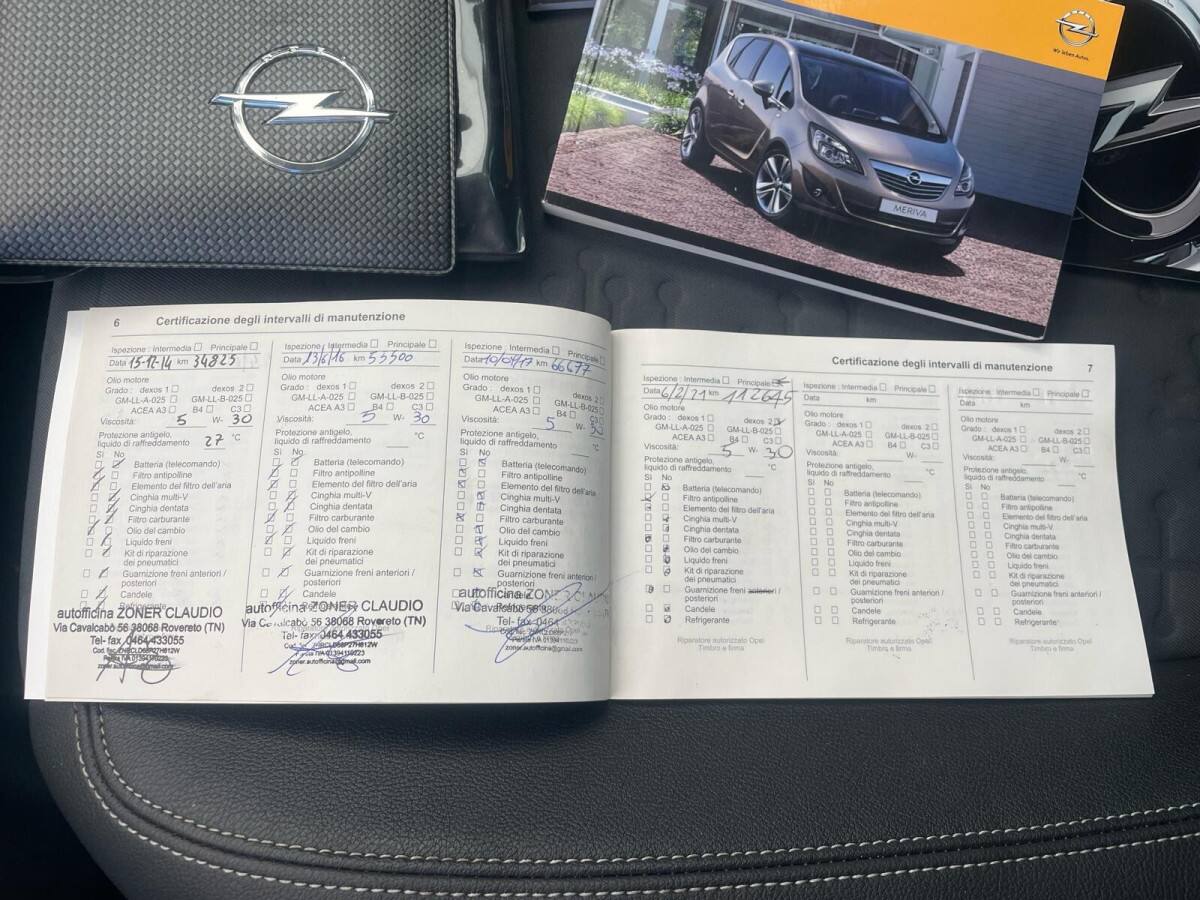 OPEL
Wir leben Autos.
MERIVA
6
Certificazione degli intervalli di manutenzione
Ispezione : Intermedia Principale
Data 15-12-14 km 34825
Olio motore
Grado : dexos 1 dexos 2
GM-LL-A-025 GM-LL-B-025
ACEA A3 B4 C3
Viscosità: 5 W- 30
Protezione antigelo,
liquido di raffreddamento 27 °C
Sì No
Batteria (telecomando)
Filtro antipolline
Elemento del filtro dell'aria
Cinghia multi-V
Cinghia dentata
Filtro carburante
Olio del cambio
Liquido freni
Kit di riparazione
dei pneumatici
Guarnizione freni anteriori /
posteriori
Candele
Refrigerante
autofficina ZONER CLAUDIO
Via Cavalcabò 56 38068 Rovereto (TN)
Tel- fax 0464 433055
zoner.autofficina@gmail.com
Ispezione : Intermedia Principale
Data 13/6/16 km 53500
Olio motore
Grado : dexos 1 dexos 2
GM-LL-A-025 GM-LL-B-025
ACEA A3 B4 C3
Viscosità: 5 W- 30
Protezione antigelo,
liquido di raffreddamento °C
Sì No
Batteria (telecomando)
Filtro antipolline
Elemento del filtro dell'aria
Cinghia multi-V
Cinghia dentata
Filtro carburante
Olio del cambio
Liquido freni
Kit di riparazione
dei pneumatici
Guarnizione freni anteriori /
posteriori
Candele
autofficina ZONER CLAUDIO
Via Cavalcabò 56 38068 Rovereto (TN)
Tel- fax 0464 433055
zoner.autofficina@gmail.com
Ispezione : Intermedia Principale
Data km 66677
Olio motore
Grado : dexos 1 dexos 2
GM-LL-A-025 GM-LL-B-025
ACEA A3 B4 C3
Viscosità: 5 W- 30
Protezione antigelo,
liquido di raffreddamento °C
Sì No
Batteria (telecomando)
Filtro antipolline
Elemento del filtro dell'aria
Cinghia multi-V
Cinghia dentata
Filtro carburante
Olio del cambio
Liquido freni
Kit di riparazione
dei pneumatici
Guarnizione freni anteriori /
posteriori
autofficina ZONER
Via Cavalcabò 56
Tel- fax 0464
zoner.autofficina@gmail.com
Certificazione degli intervalli di manutenzione
7
Ispezione : Intermedia Principale
Data 6/2/21 km 112645
Olio motore
Grado : dexos 1 dexos 2
GM-LL-A-025 GM-LL-B-025
ACEA A3 B4 C3
Viscosità: 5 W- 30
Protezione antigelo,
liquido di raffreddamento °C
Sì No
Batteria (telecomando)
Filtro antipolline
Elemento del filtro dell'aria
Cinghia multi-V
Cinghia dentata
Filtro carburante
Olio del cambio
Liquido freni
Kit di riparazione
dei pneumatici
Guarnizione freni anteriori /
posteriori
Candele
Refrigerante
Riparatore autorizzato Opel
Timbro e firma
Ispezione : Intermedia Principale
Data km
Olio motore
Grado : dexos 1 dexos 2
GM-LL-A-025 GM-LL-B-025
ACEA A3 B4 C3
Viscosità: W-
Protezione antigelo,
liquido di raffreddamento °C
Sì No
Batteria (telecomando)
Filtro antipolline
Elemento del filtro dell'aria
Cinghia multi-V
Cinghia dentata
Filtro carburante
Olio del cambio
Liquido freni
Kit di riparazione
dei pneumatici
Guarnizione freni anteriori /
posteriori
Candele
Refrigerante
Riparatore autorizzato Opel
Timbro e firma
Ispezione : Intermedia Principale
Data km
Olio motore
Grado : dexos 1 dexos 2
GM-LL-A-025 GM-LL-B-025
ACEA A3 B4 C3
Viscosità: W-
Protezione antigelo,
liquido di raffreddamento °C
Sì No
Batteria (telecomando)
Filtro antipolline
Elemento del filtro dell'aria
Cinghia multi-V
Cinghia dentata
Filtro carburante
Olio del cambio
Liquido freni
Kit di riparazione
dei pneumatici
Guarnizione freni anteriori /
posteriori
Candele
Refrigerante
Riparatore autorizzato Opel
Timbro e firma